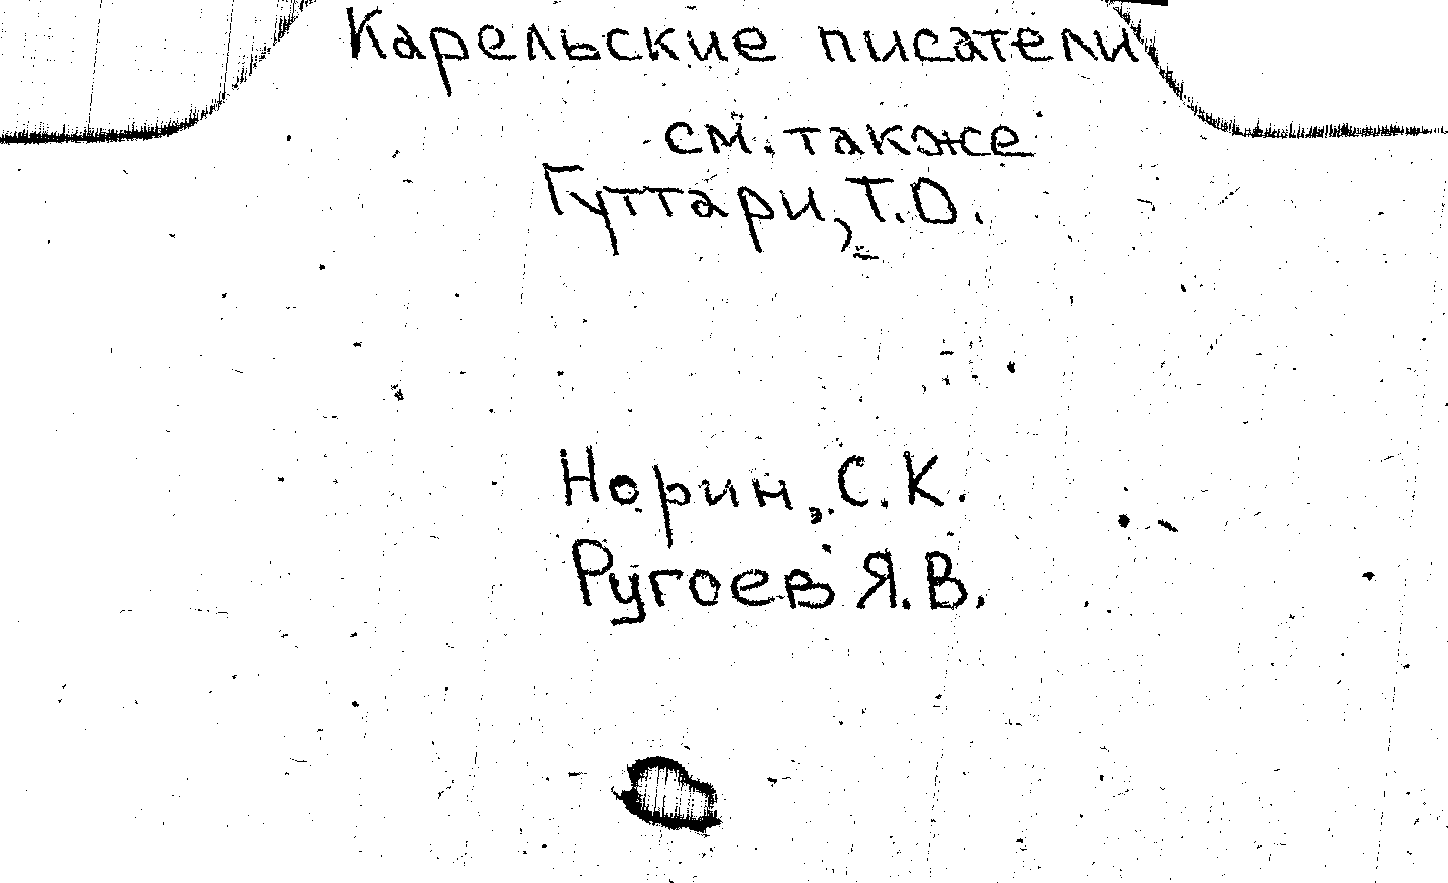 Карельские писатели
см. также
Гуттари, Т.О.
Норин, С.К.
Ругоев Я.В.